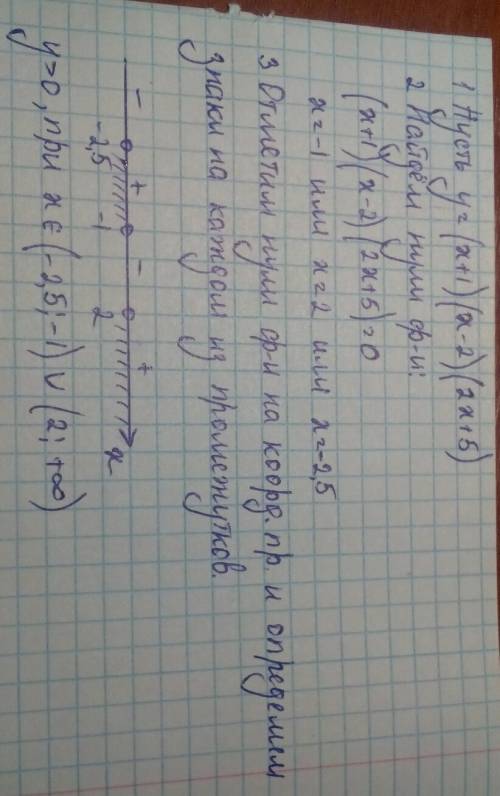 1 Пусть y = (x+1)(x-2)(2x+5)
2 Найдём нули ф-и:
(x+1)(x-2)(2x+5)=0
x=-1 или x=2 или x=-2,5
3 Отметим нули ф-и на коорд. пр. и определим
знаки на каждом из промежутков.
- + - +
-2,5 -1 2 x
y>0, при x∈(-2,5;-1)∪(2;+∞)